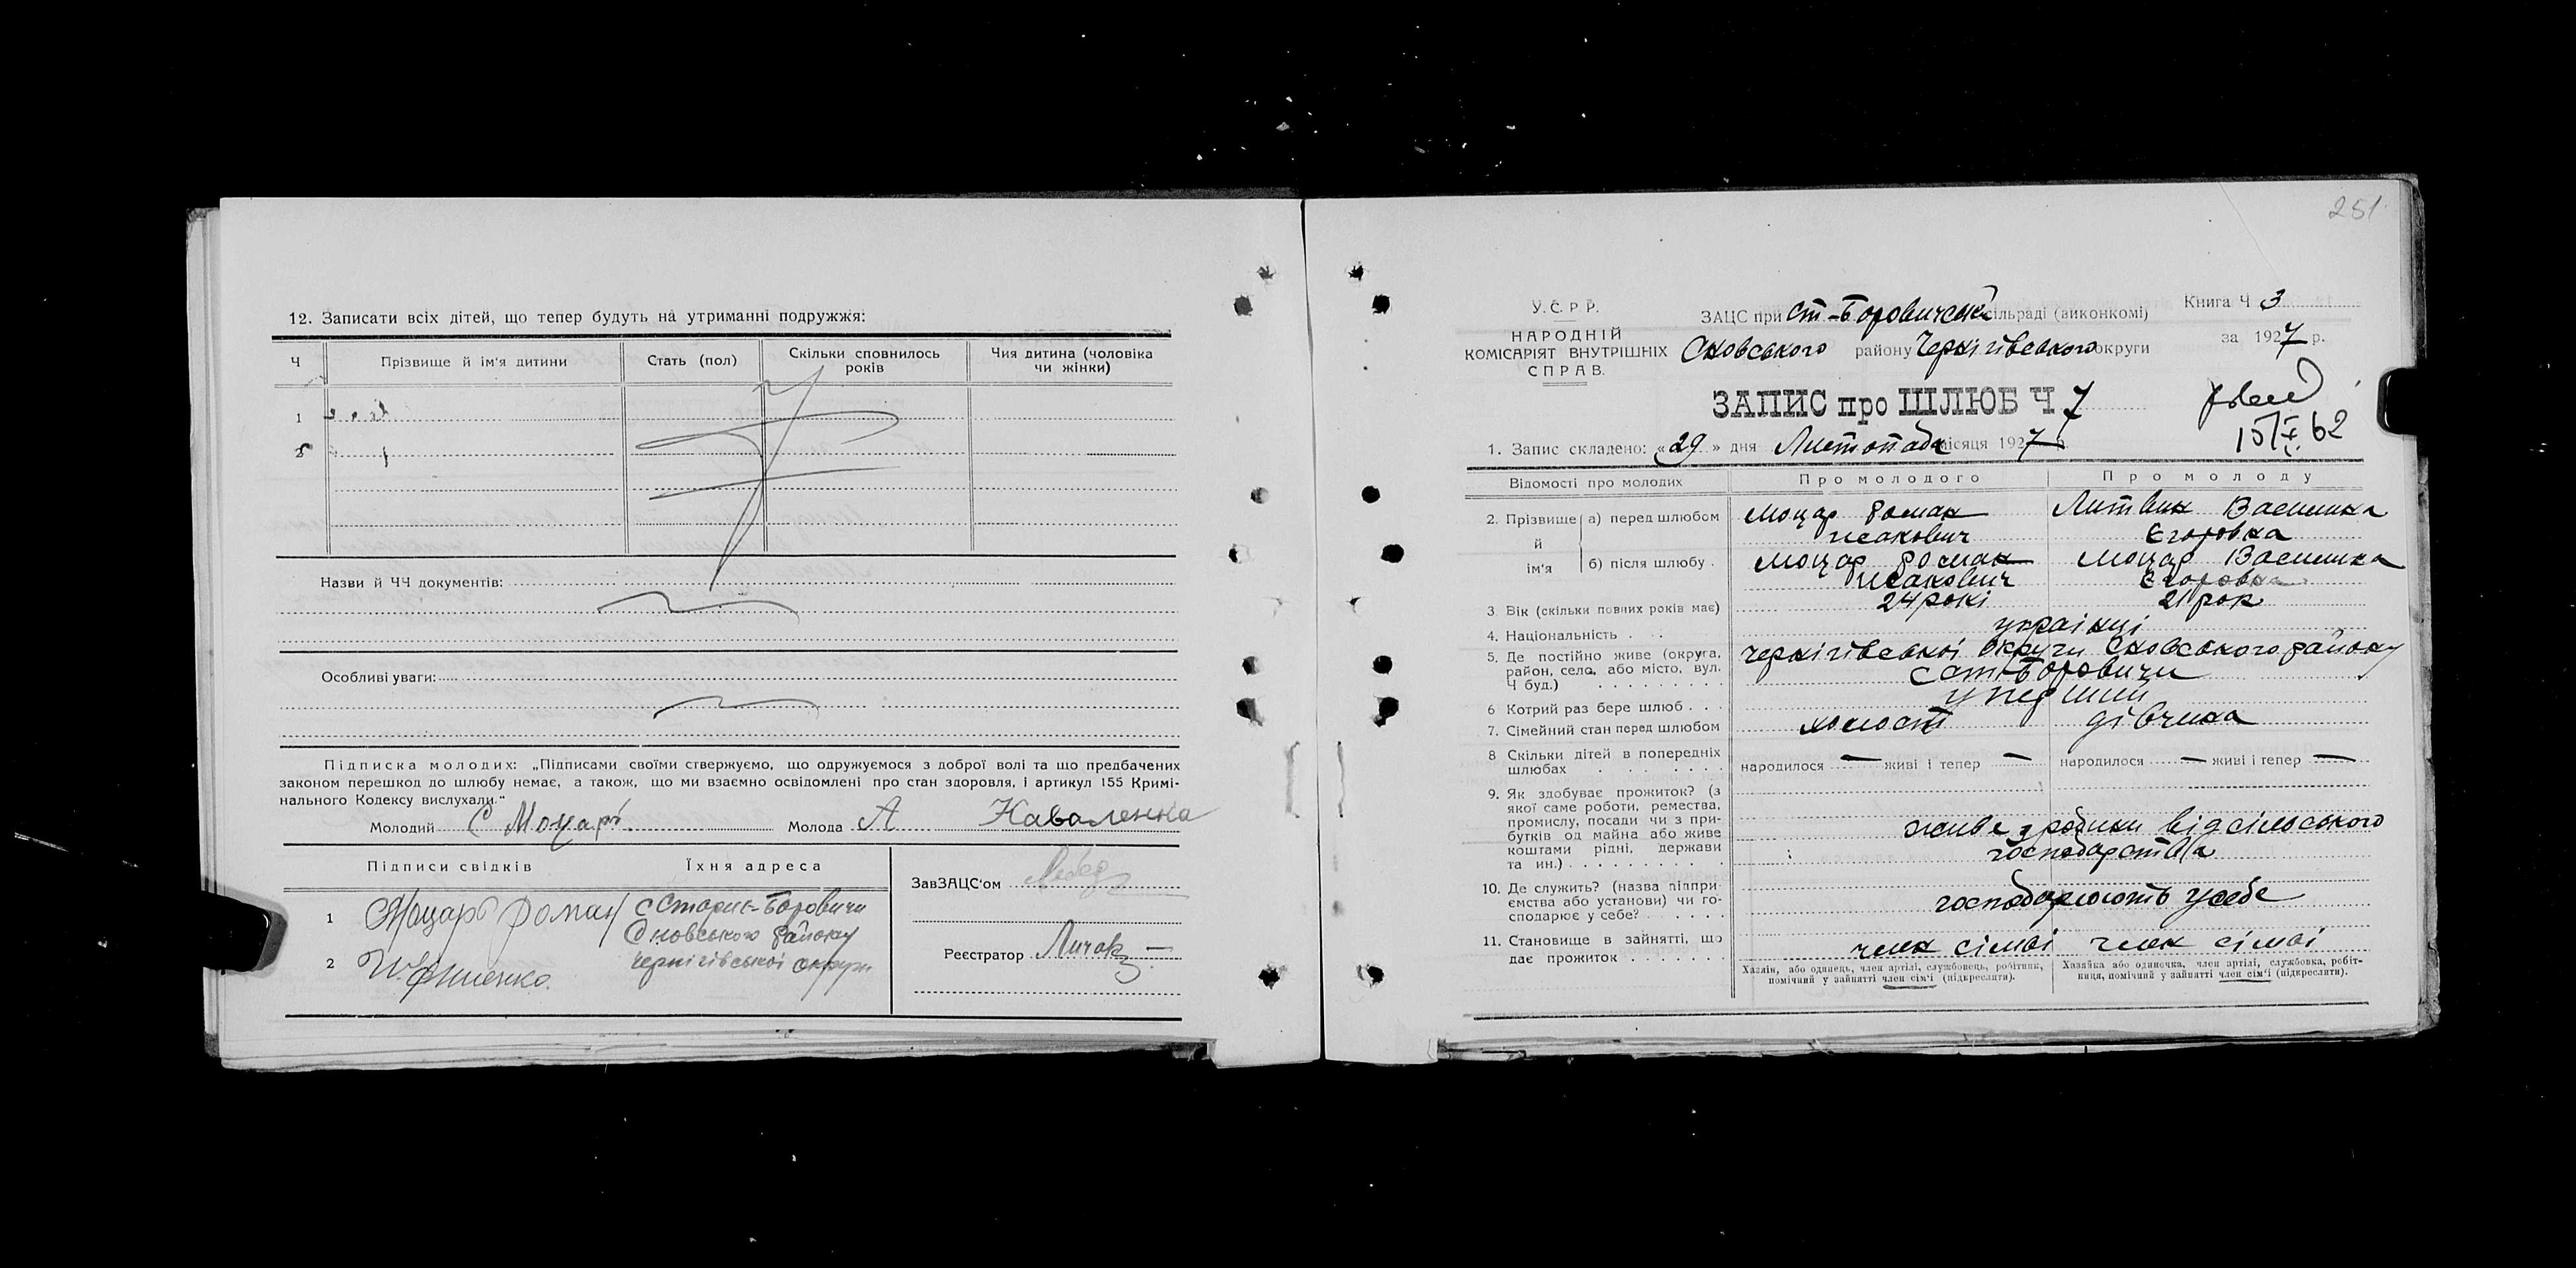 12. Записати всіх дітей, що тепер будуть на утриманні подружжя:
Ч
Прізвище й ім'я дитини
Стать (пол)
Скільки сповнилось років
Чия дитина (чоловіка чи жінки)
1
2
Назви й ЧЧ документів:
Особливі уваги:
Підписка молодих: „Підписами своїми стверджуємо, що одружуємося з доброї волі та що предбачених
законом перешкод до шлюбу немає, а також, що ми взаємно освідомлені про стан здоровля, і артикул 155 Кримі-
нального Кодексу вислухали."
Молодий С Моцарь Молода А Каваленка
Підписи свідків Їхня адреса
1 Моцарь Роман с Старие-Боровичи
Сновського району
2 Чернігівської округи
ЗавЗАЦС'ом
Реєстратор
251
У.С.Р.Р.
НАРОДНІЙ
КОМІСАРІЯТ ВНУТРІШНІХ
СПРАВ.
ЗАЦС при Ст-Боровичській сільраді (виконкомі)
Сновського району Чернігівського округи
Книга Ч 3
за 1927 р.
ЗАПИС про ШЛЮБ Ч 7
15/X 62
1. Запис складено: «29» дня Листопада місяця 1927 р.
Відомості про молодих Про молодого Про молоду
2. Прізвище й ім'я а) перед шлюбом Моцар Роман Исакович Литвин Василина Єгоровна
б) після шлюбу Моцар Роман Исакович Моцар Василина Єгоровна
3 Вік (скільки повних років має) 24 рокі 21 рок
4. Національність украінці
5. Де постійно живе (округа, Чернігівської округи Сновського району
район, село, або місто, вул. с ст-Боровичи
Ч буд.)
6 Котрий раз бере шлюб у перший
7. Сімейний стан перед шлюбом холост дівчина
8 Скільки дітей в попередніх
шлюбах народилося — живі і тепер — народилося — живі і тепер —
9. Як здобуває прожиток? (з
якої саме роботи, ремества,
промислу, посади чи з при-
бутків од майна або живе живе з родини від сільського
коштами рідні, держави господарства
та ин.)
10. Де служить? (назва підпри-
ємства або установи) чи го- господарюють у себе
сподарює у себе?
11. Становище в зайнятті, що член сімьі член сімьі
дає прожиток
Хазяїн, або одинець, член артілі, службовець, робітник,
помічний у зайнятті член сім'ї (підкреслити).
Хазяйка або одиночка, член артілі, службовка, робіт-
ниця, помічний у зайнятті член сім'ї (підкреслити).